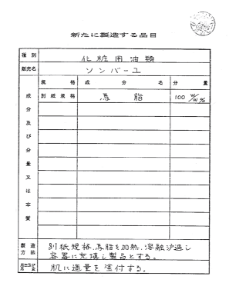 新たに製造する品目
種別 化粧用油類
販売名 ソンバーユ
成分及び分量又は本質
規格 成分名 分量
別紙規格 馬脂 100
製造方法 別紙規格、馬脂を加熱、溶融ろ過し
容器に充填し製品とする。
肌に適量を塗付する。